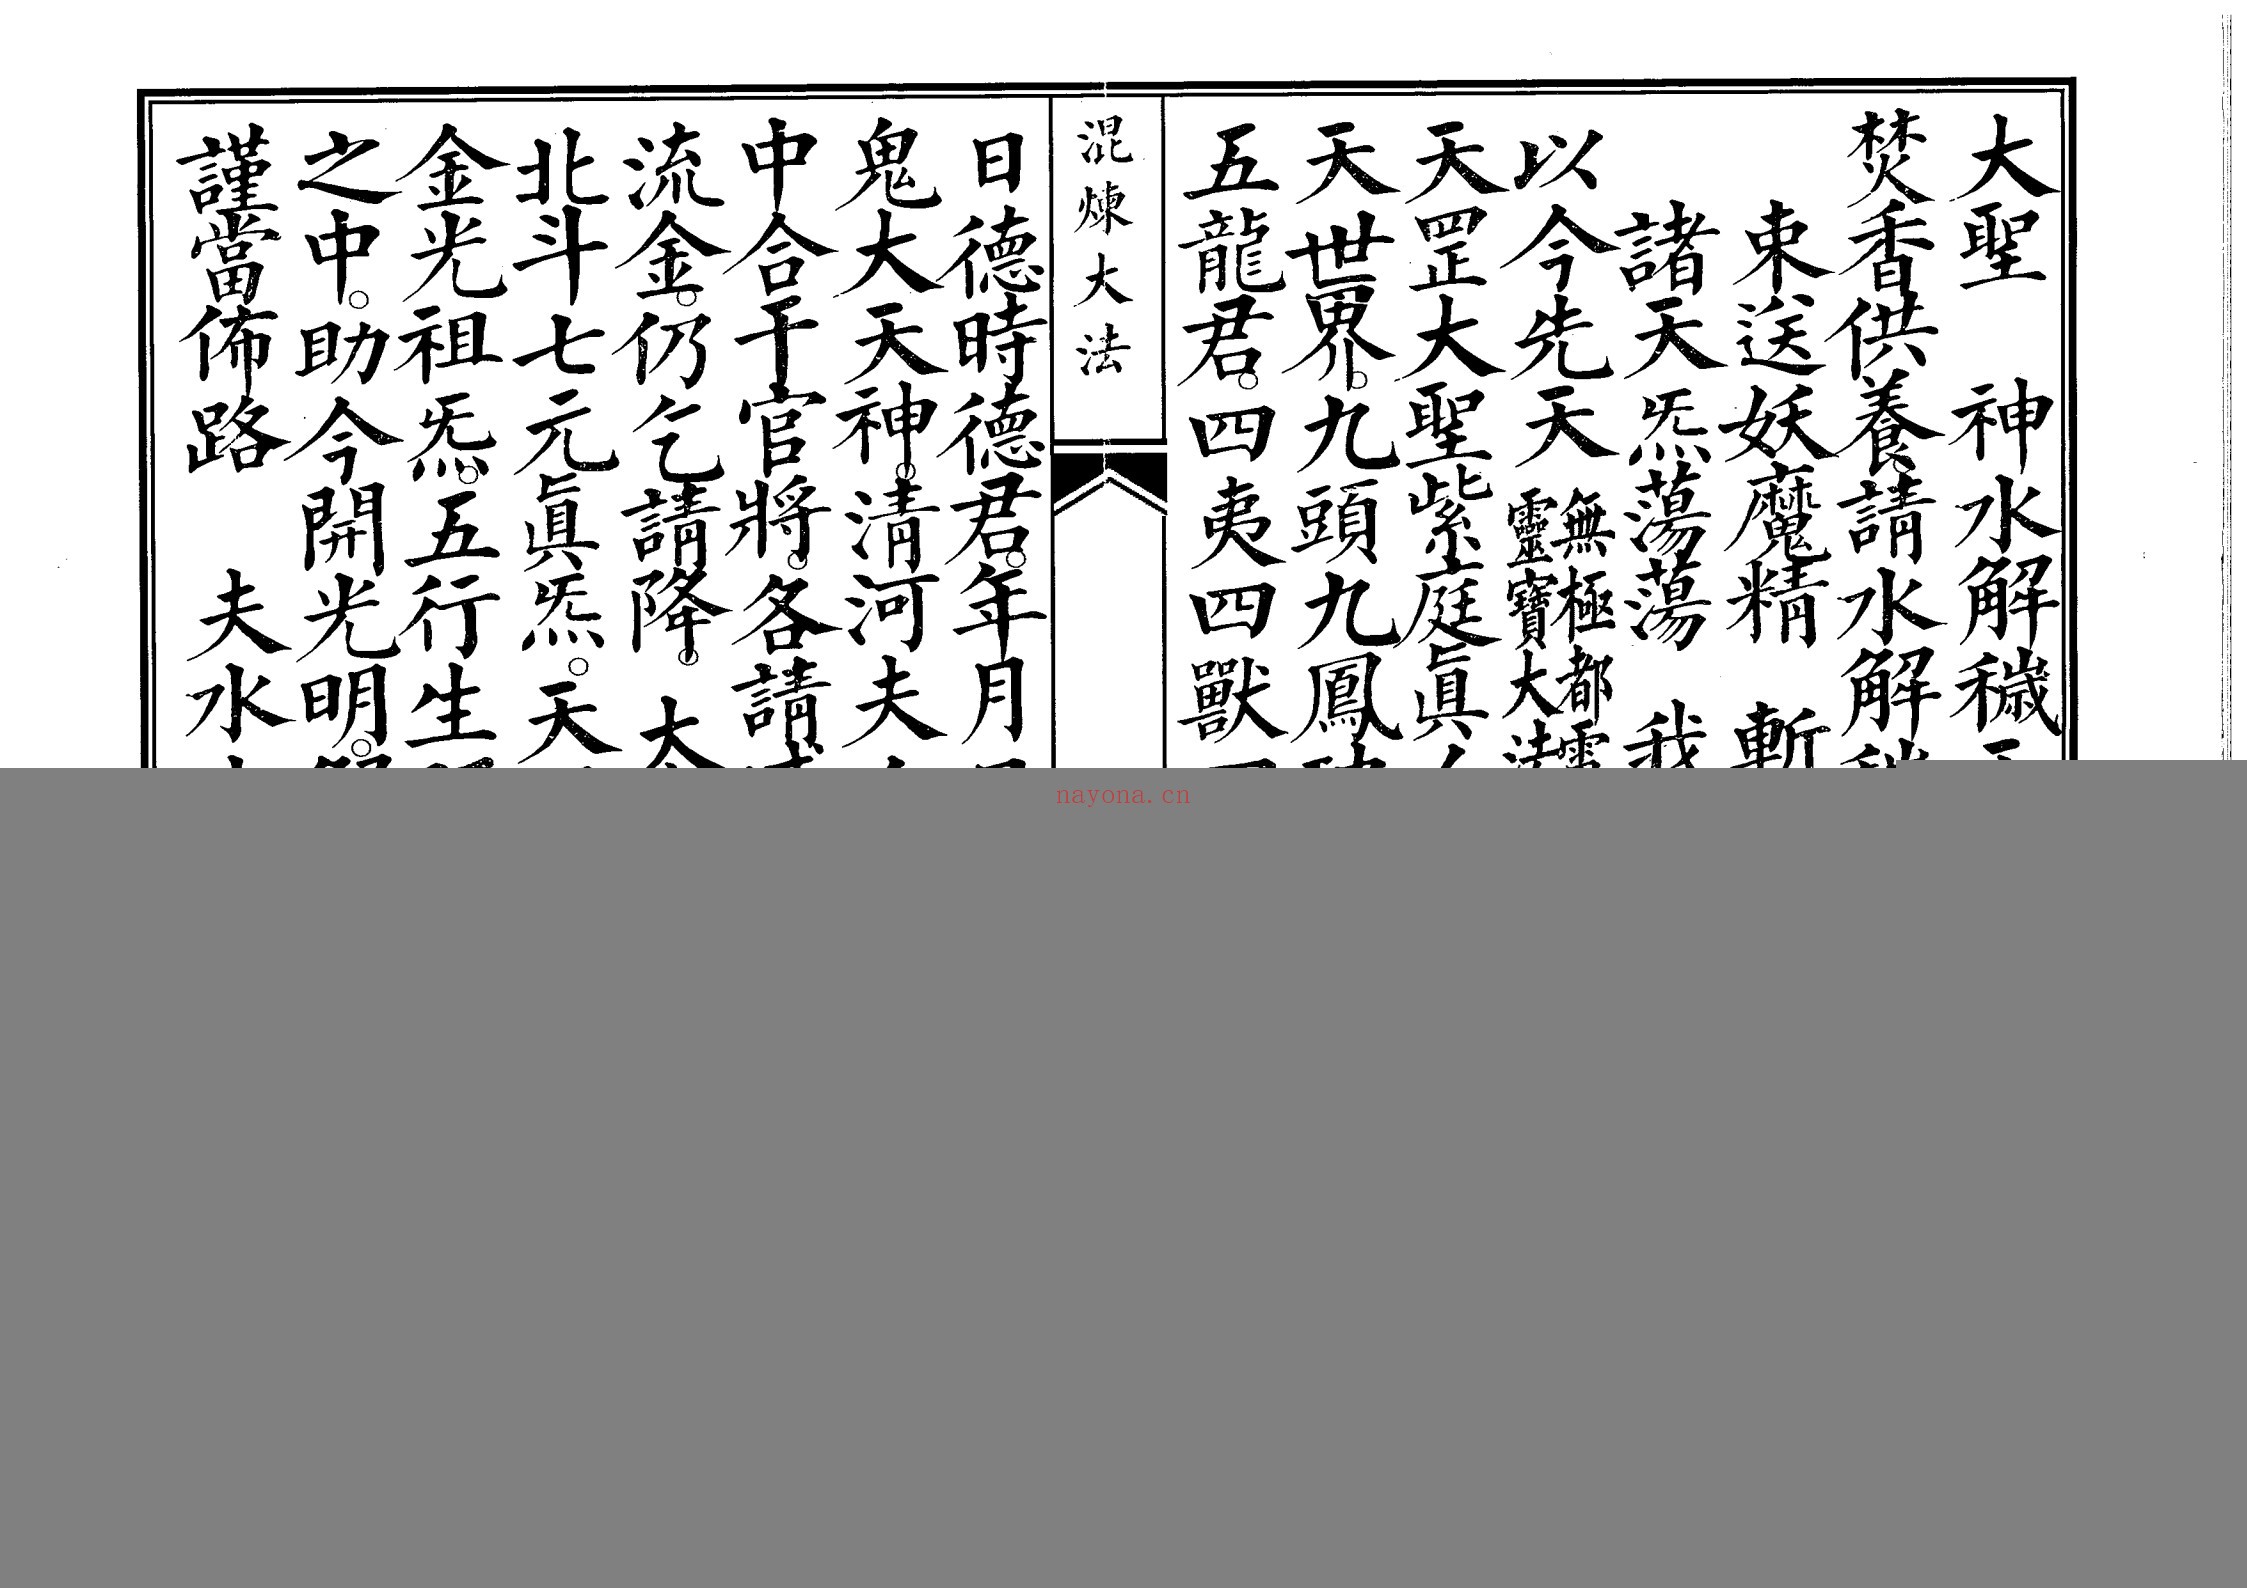 大聖　神水解穢
焚香供養請水解
束送妖魔精　斬
諸天炁蕩蕩　我
以今先天無極都靈寶大法
天罡大聖紫庭眞
天世界。九頭九鳳
五龍君。四夷四獸
混煉大法
日德時德君。年月
鬼大天神。清河夫
中合干官將。各請
流金。仍乞請降。
北斗七元眞炁。天
金光祖炁。五行生
之中。助今開光明。
謹當佈路　夫水
nayona.cn